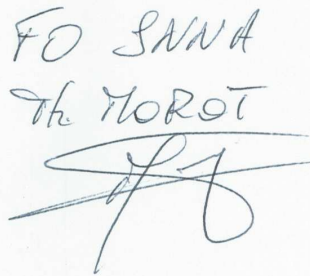 FO SNNA
Th. MOROT